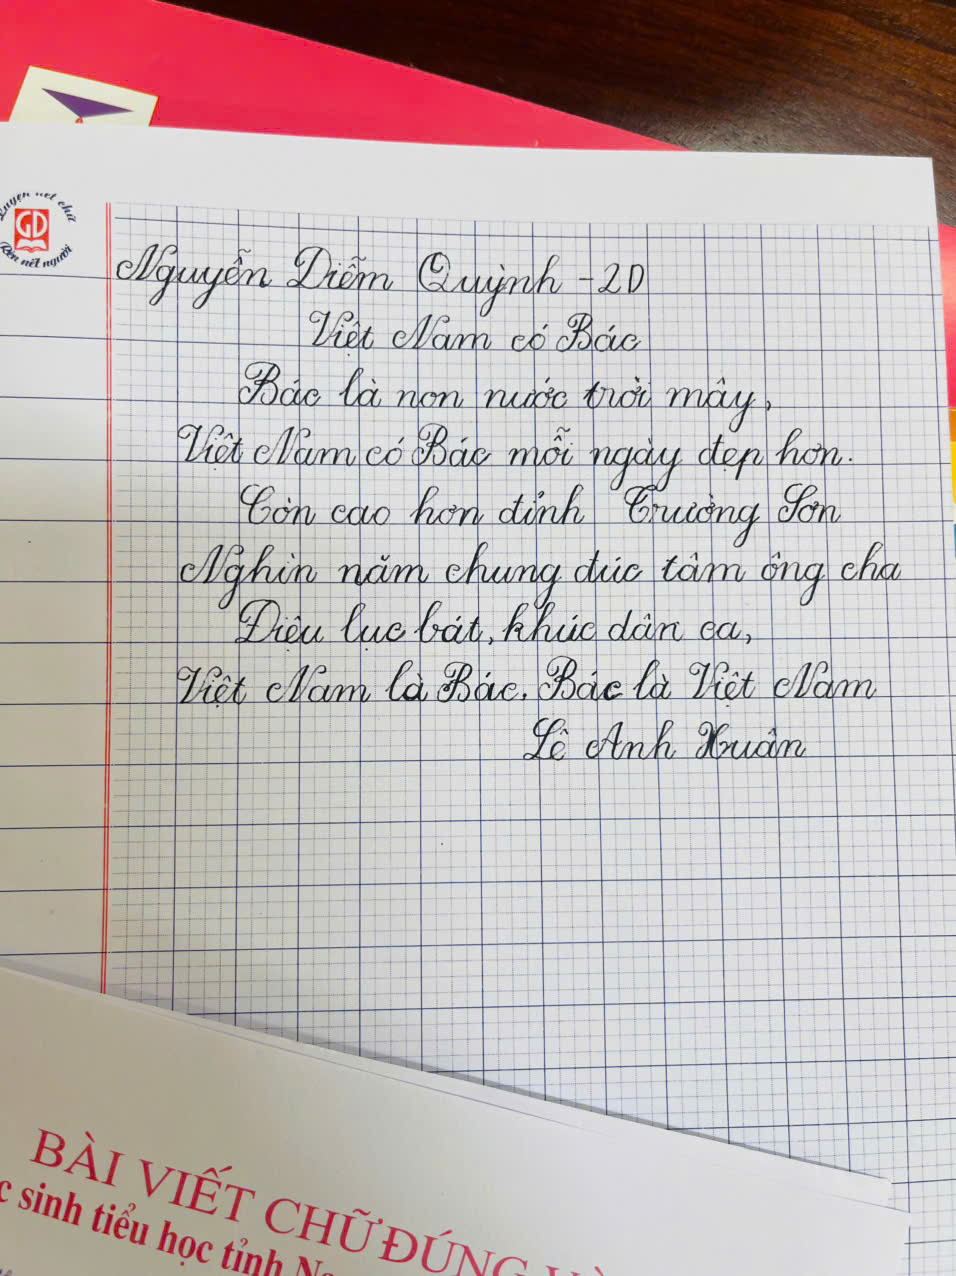 Luyện nét chữ
GD
Rèn nết người
Nguyễn Diễm Quỳnh - 2D
Việt Nam có Bác
Bác là non nước trời mây,
Việt Nam có Bác mỗi ngày đẹp hơn.
Còn cao hơn đỉnh Trường Sơn
Nghìn năm chung đúc tâm ông cha
Điệu lục bát, khúc dân ca,
Việt Nam là Bác, Bác là Việt Nam
Lê Anh Xuân
BÀI VIẾT CHỮ ĐÚNG
sinh tiểu học tỉnh